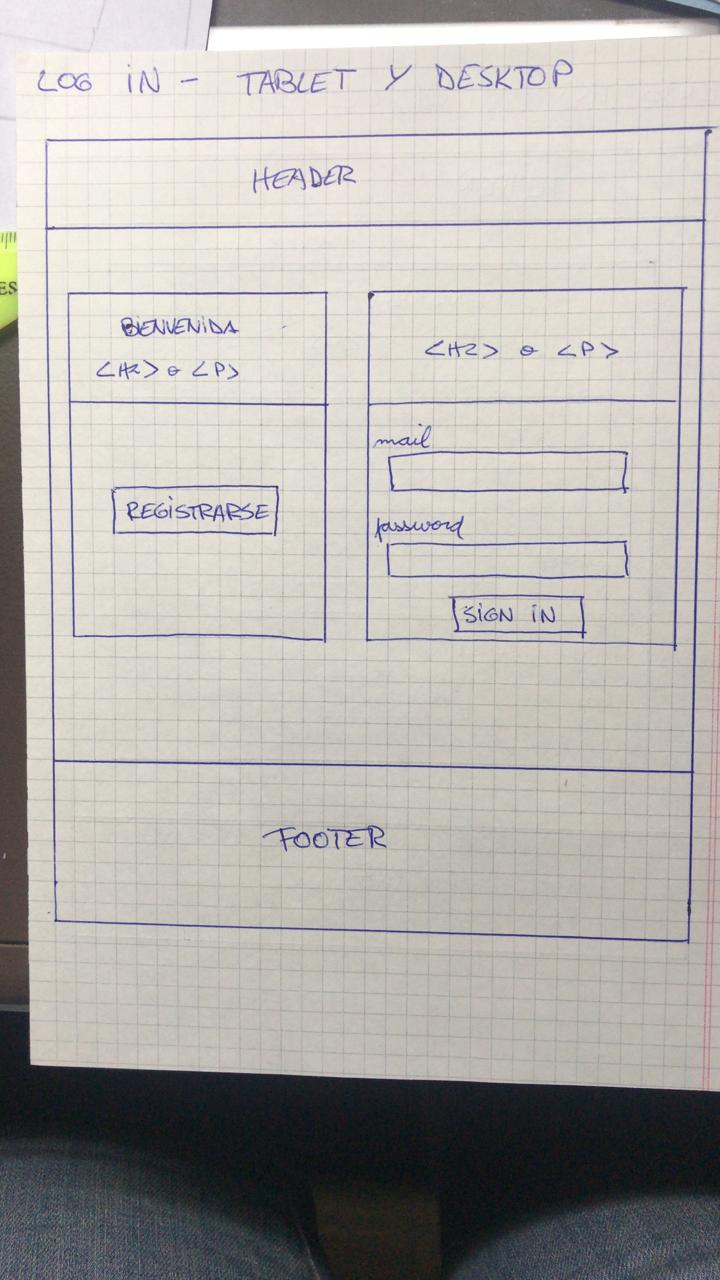 LOG IN - TABLET Y DESKTOP
HEADER
BIENVENIDA
<H2> o <P>
REGISTRARSE
<H2> o <P>
mail
password
SIGN IN
FOOTER
ES